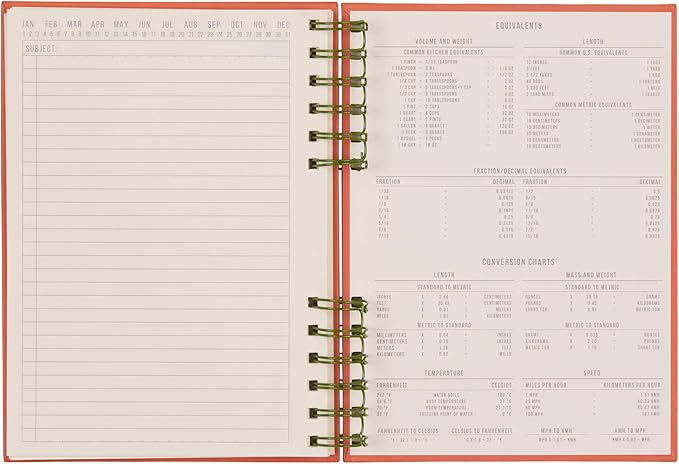 JAN FEB MAR APR MAY JUN JUL AUG SEP OCT NOV DEC
1 2 3 4 5 6 7 8 9 10 11 12 13 14 15 16 17 18 19 20 21 22 23 24 25 26 27 28 29 30 31
SUBJECT:
EQUIVALENTS
VOLUME AND WEIGHT
COMMON KITCHEN EQUIVALENTS
1 PINCH = 1/16 TEASPOON
1 TEASPOON = 5 ML
1 TABLESPOON = 3 TEASPOONS = 1/2 OZ
1/4 CUP = 4 TABLESPOONS = 2 OZ
1 PINT = 2 CUPS = 16 OZ
1 QUART = 2 PINTS = 32 OZ
1 GALLON = 4 QUARTS = 128 OZ
1 PECK = 8 QUARTS = 256 OZ
1 BUSHEL = 4 PECKS
LENGTH
COMMON U.S. EQUIVALENTS
12 INCHES = 1 FOOT
3 FEET = 1 YARD
5 1/2 YARDS = 1 ROD
40 RODS = 1 FURLONG
5,280 FEET = 1 MILE
3 LAND MILES = 1 LEAGUE
COMMON METRIC EQUIVALENTS
10 MILLIMETERS = 1 CENTIMETER
10 CENTIMETERS = 1 DECIMETER
10 DECIMETERS = 1 METER
10 METERS = 1 DEKAMETER
10 DEKAMETERS = 1 HECTOMETER
10 HECTOMETERS = 1 KILOMETER
FRACTION/DECIMAL EQUIVALENTS
FRACTION DECIMAL FRACTION DECIMAL
1/32 = 0.03125 1/2 = 0.5
1/16 = 0.0625 9/16 = 0.5625
1/8 = 0.125 5/8 = 0.625
3/16 = 0.1875 11/16 = 0.6875
1/4 = 0.25 3/4 = 0.75
5/16 = 0.3125 13/16 = 0.8125
3/8 = 0.375 7/8 = 0.875
7/16 = 0.4375 15/16 = 0.9375
CONVERSION CHARTS
LENGTH
STANDARD TO METRIC
INCHES X 2.54 = CENTIMETERS
FEET X 30.48 = CENTIMETERS
YARDS X 0.91 = METERS
MILES X 1.61 = KILOMETERS
METRIC TO STANDARD
MILLIMETERS X 0.04 = INCHES
CENTIMETERS X 0.39 = INCHES
METERS X 3.28 = FEET
KILOMETERS X 0.62 = MILES
MASS AND WEIGHT
STANDARD TO METRIC
OUNCES X 28.35 = GRAMS
POUNDS X 0.45 = KILOGRAMS
SHORT TON X 0.91 = METRIC TON
METRIC TO STANDARD
GRAMS X 0.035 = OUNCES
KILOGRAMS X 2.20 = POUNDS
METRIC TON X 1.10 = SHORT TON
TEMPERATURE
FAHRENHEIT CELSIUS
212 °F WATER BOILS 100 °C
98.6 °F BODY TEMPERATURE 37 °C
70 °F ROOM TEMPERATURE 21.1 °C
32 °F FREEZING POINT OF WATER 0 °C
FAHRENHEIT TO CELSIUS CELSIUS TO FAHRENHEIT
SPEED
MILES PER HOUR KILOMETERS PER HOUR
1 MPH = 1.61 KMH
25 MPH = 40.23 KMH
50 MPH = 80.47 KMH
MPH TO KMH KMH TO MPH
MPH X 1.61 = KMH KMH X 0.62 = MPH